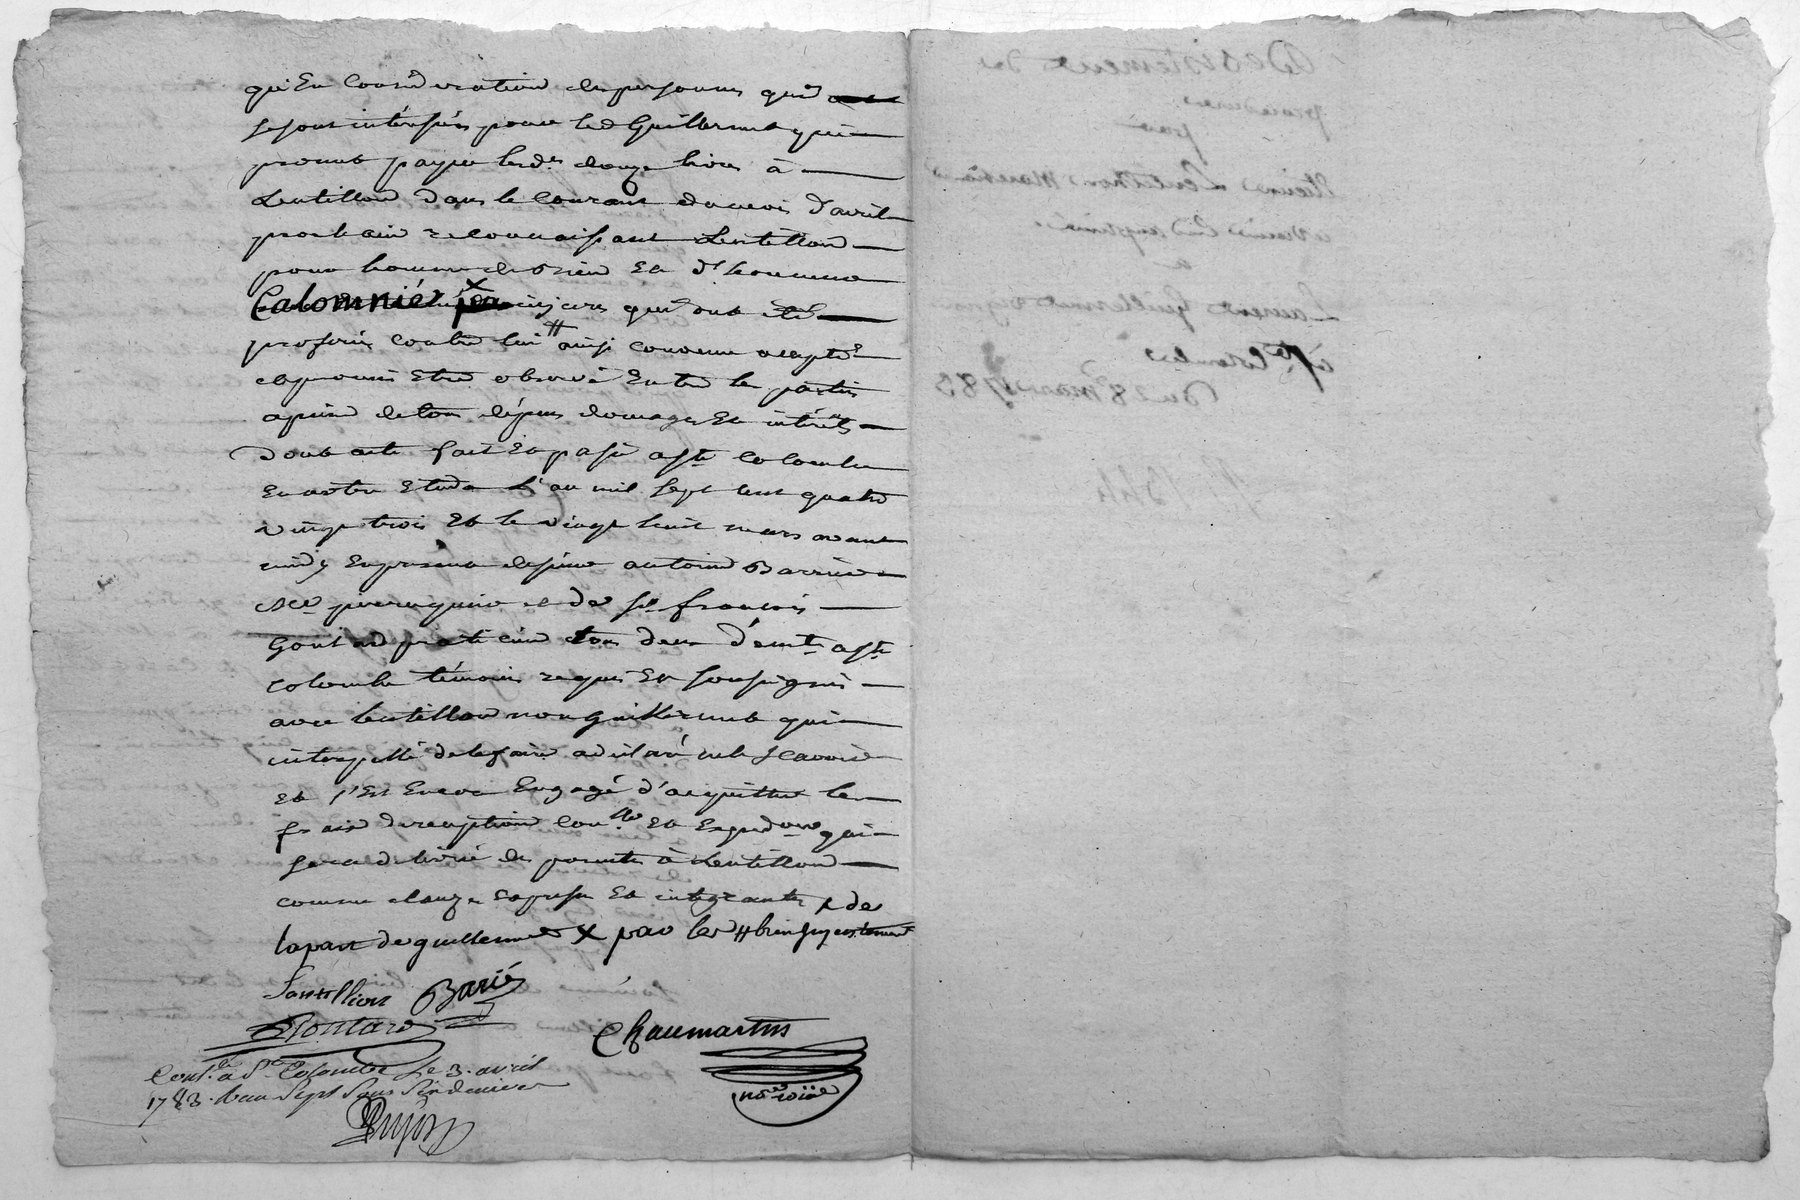 qu'En Consideration des personnes qui
se sont intéréssées pour led Guillermet qui
promet payer lesd. douze livres à
Lentillon dans le Courant du mois d'avril
prochain reconnaissant Lentillon
pour homme de bien Et d'honneur
Calomnié injures qui ont été
proferés contre lui # ainsi convenu accepté
et promis Etre observé Entre les parties
a peine de tous dépens domages Et intérêts
Dont acte fait Et passé a Ste Colombe
En notre Etude L'an mil sept cent quatre
vingt trois Et le vingt huit mars avant
midy En presence de sieur antoine Barrier
Me perruquier et de Sr françois
Goutard praticien tous deux demts a Ste
Colombe témoins requis Et soussignés
avec Lentillon non Guillermet qui
interpellé de le faire a déclaré ne le scavoir
Et s'Est Encore Engagé d'acquitter les
frais de reception Conlle Et Expedon qui
sera délivré des presentes à Lentillon
comme clause Expresse Et integrante x de
la part de guillermet x par les # bien injustement
Lentillion Barié
Goutard
Chaumartin
nore roial
Contlé à Ste Colombe Le 3. avril
1783. Reçu Sept Sous Six deniers
Desistement de
procedures
par
Lentillon Marchand
a
Laurent Guillermet
à Ste Colombe
Du 28 mars 1783